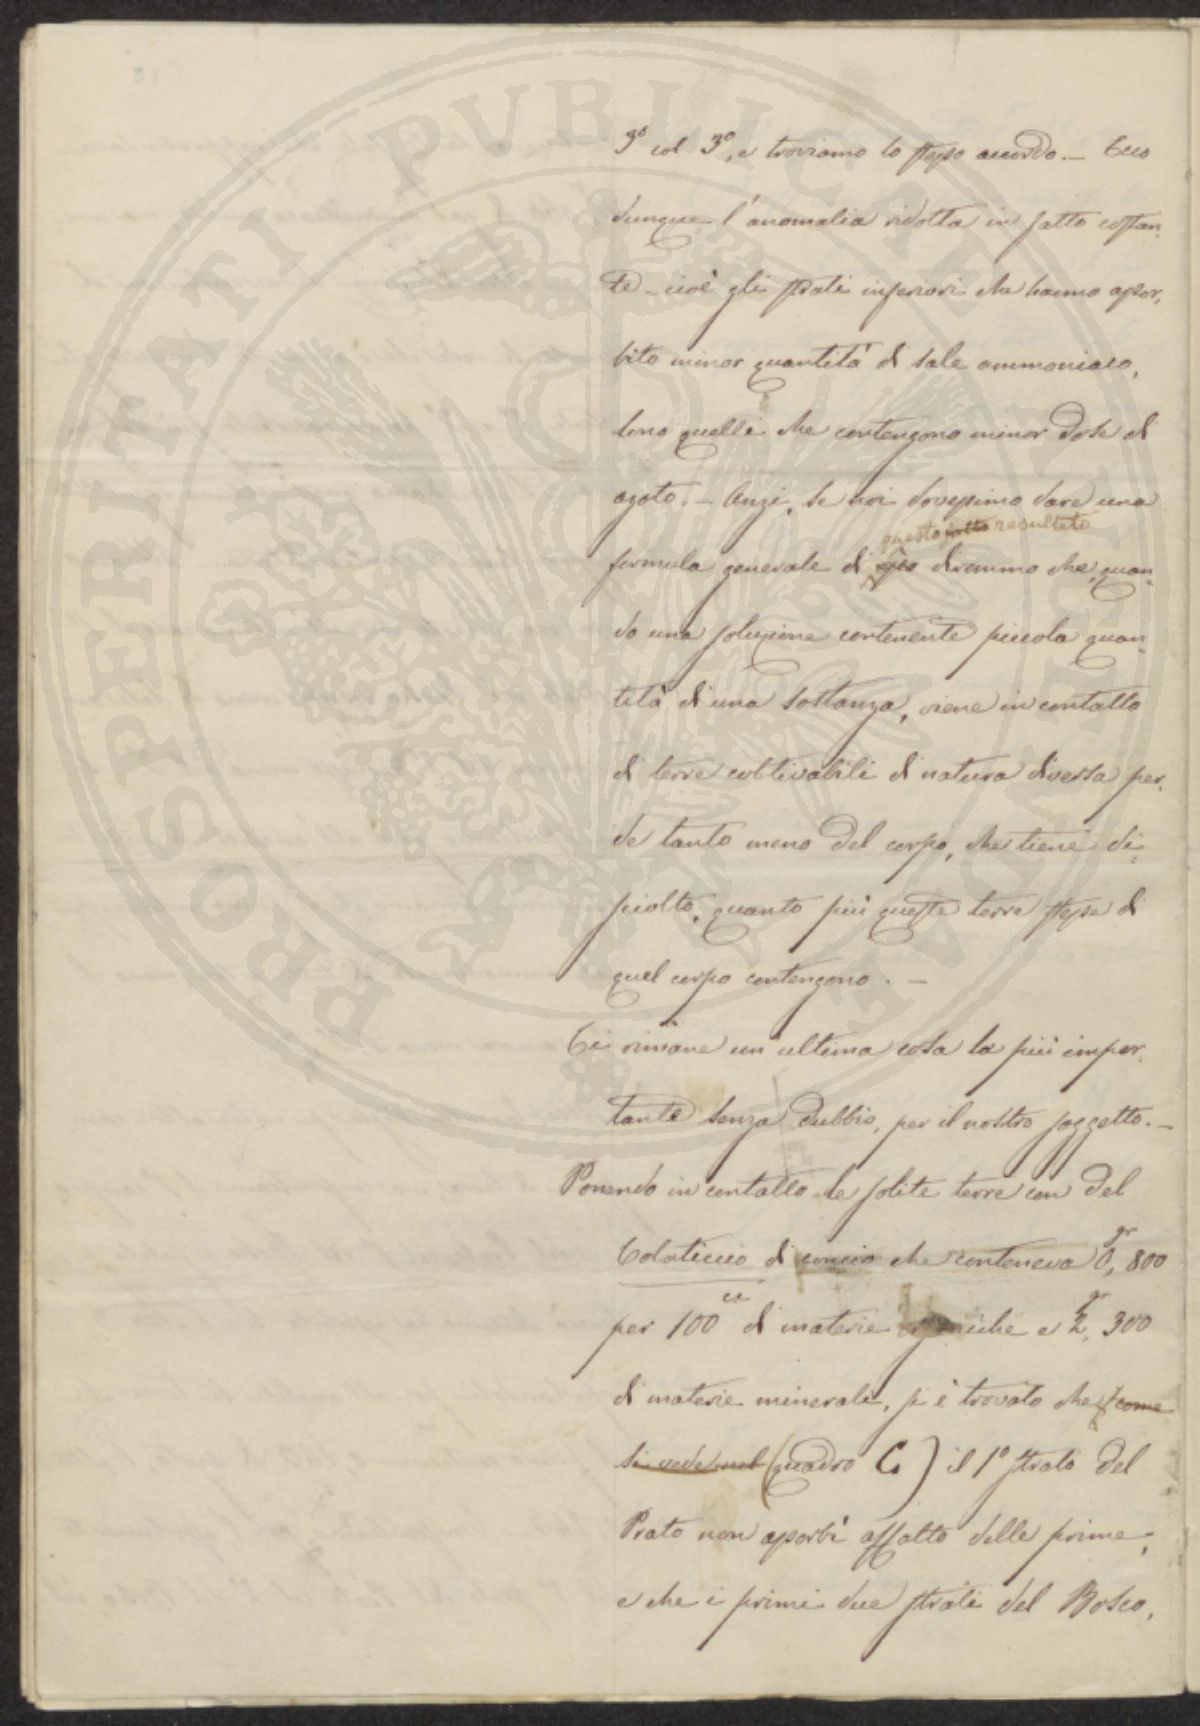 PROSPERITATI PUBLICAE
3º col 3º, e troviamo lo stesso accordo. — Ecco
dunque l'anomalia ridotta in fatto costan-
te — cioè gli strati inferiori che hanno assor-
bito minor quantità di sale ammoniaco,
sono quelli che contengono minor dose di
azoto. — Anzi, se noi dovessimo dare una
questo fatto resultato
formula generale di esso diremmo che, quan-
do una soluzione contenente piccola quan-
tità di una sostanza, viene in contatto
di terre coltivabili di natura diversa per-
de tanto meno del corpo, che tiene di-
sciolto, quanto più queste terre stesse di
quel corpo contengono. —
Ci rimane un ultima cosa la più impor-
tante senza dubbio, per il nostro soggetto. —
Ponendo in contatto le solite terre con del
Colaticcio di concio che conteneva 0,gr 800
per 100 cc di materie organiche e 2,gr 300
di materie minerali, si è trovato che (come
si vede nel (quadro C) il 1º strato del
Prato non assorbì affatto delle prime,
e che i primi due strati del Bosco,